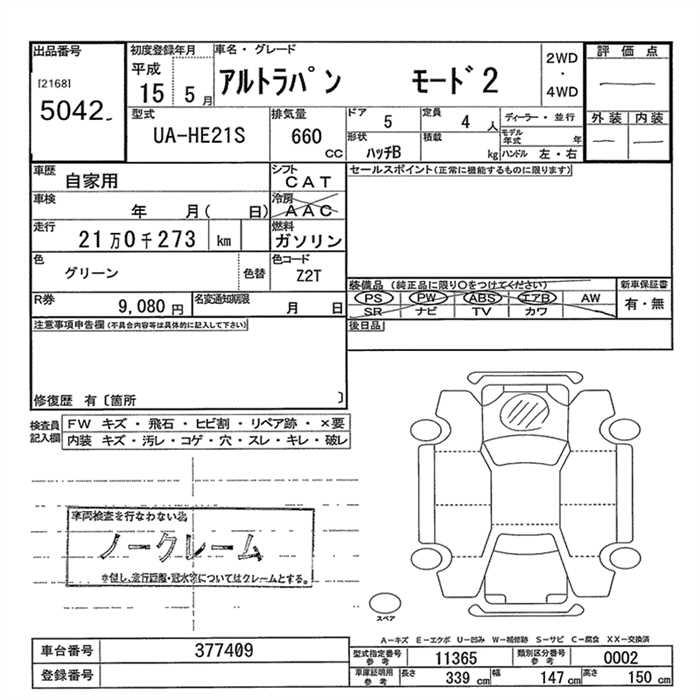 出品番号
[2168]
5042
初度登録年月
平成
15 5月
車名・グレード
アルトラパン モード2
2WD
・
4WD
評価点
外装 内装
型式
UA-HE21S
排気量
660
CC
ドア
5
形状
ハッチB
定員
4 人
積載
kg
ディーラー・並行
モデル
年式 年
ハンドル 左・右
車歴
自家用
車検
年 月( 日)
走行
21万0千273 km
色
グリーン
色替
R券
9,080円
名変通知期限
月 日
シフト
CAT
冷房
AAC
燃料
ガソリン
色コード
Z2T
セールスポイント(正常に機能するものに限ります)
装備品(純正品に限り○をつけてください)
PS PW ABS エアB AW
SR ナビ TV カワ
新車保証書
有・無
後日品
注意事項申告欄(不具合内容等は具体的に記入して下さい)
修復歴 有〔箇所 〕
検査員
記入欄
FW キズ・飛石・ヒビ割・リペア跡・×要
内装 キズ・汚レ・コゲ・穴・スレ・キレ・破レ
車両検査を行なわない為
ノークレーム
※但し、走行距離・冠水等についてはクレームとする。
スペア
A-キズ E-エクボ U-凹み W-補修跡 S-サビ C-腐食 XX-交換済
車台番号
377409
登録番号
型式指定番号
参考
11365
類別区分番号
参考
0002
車庫証明用
参考
長さ
339 cm
幅
147 cm
高さ
150 cm